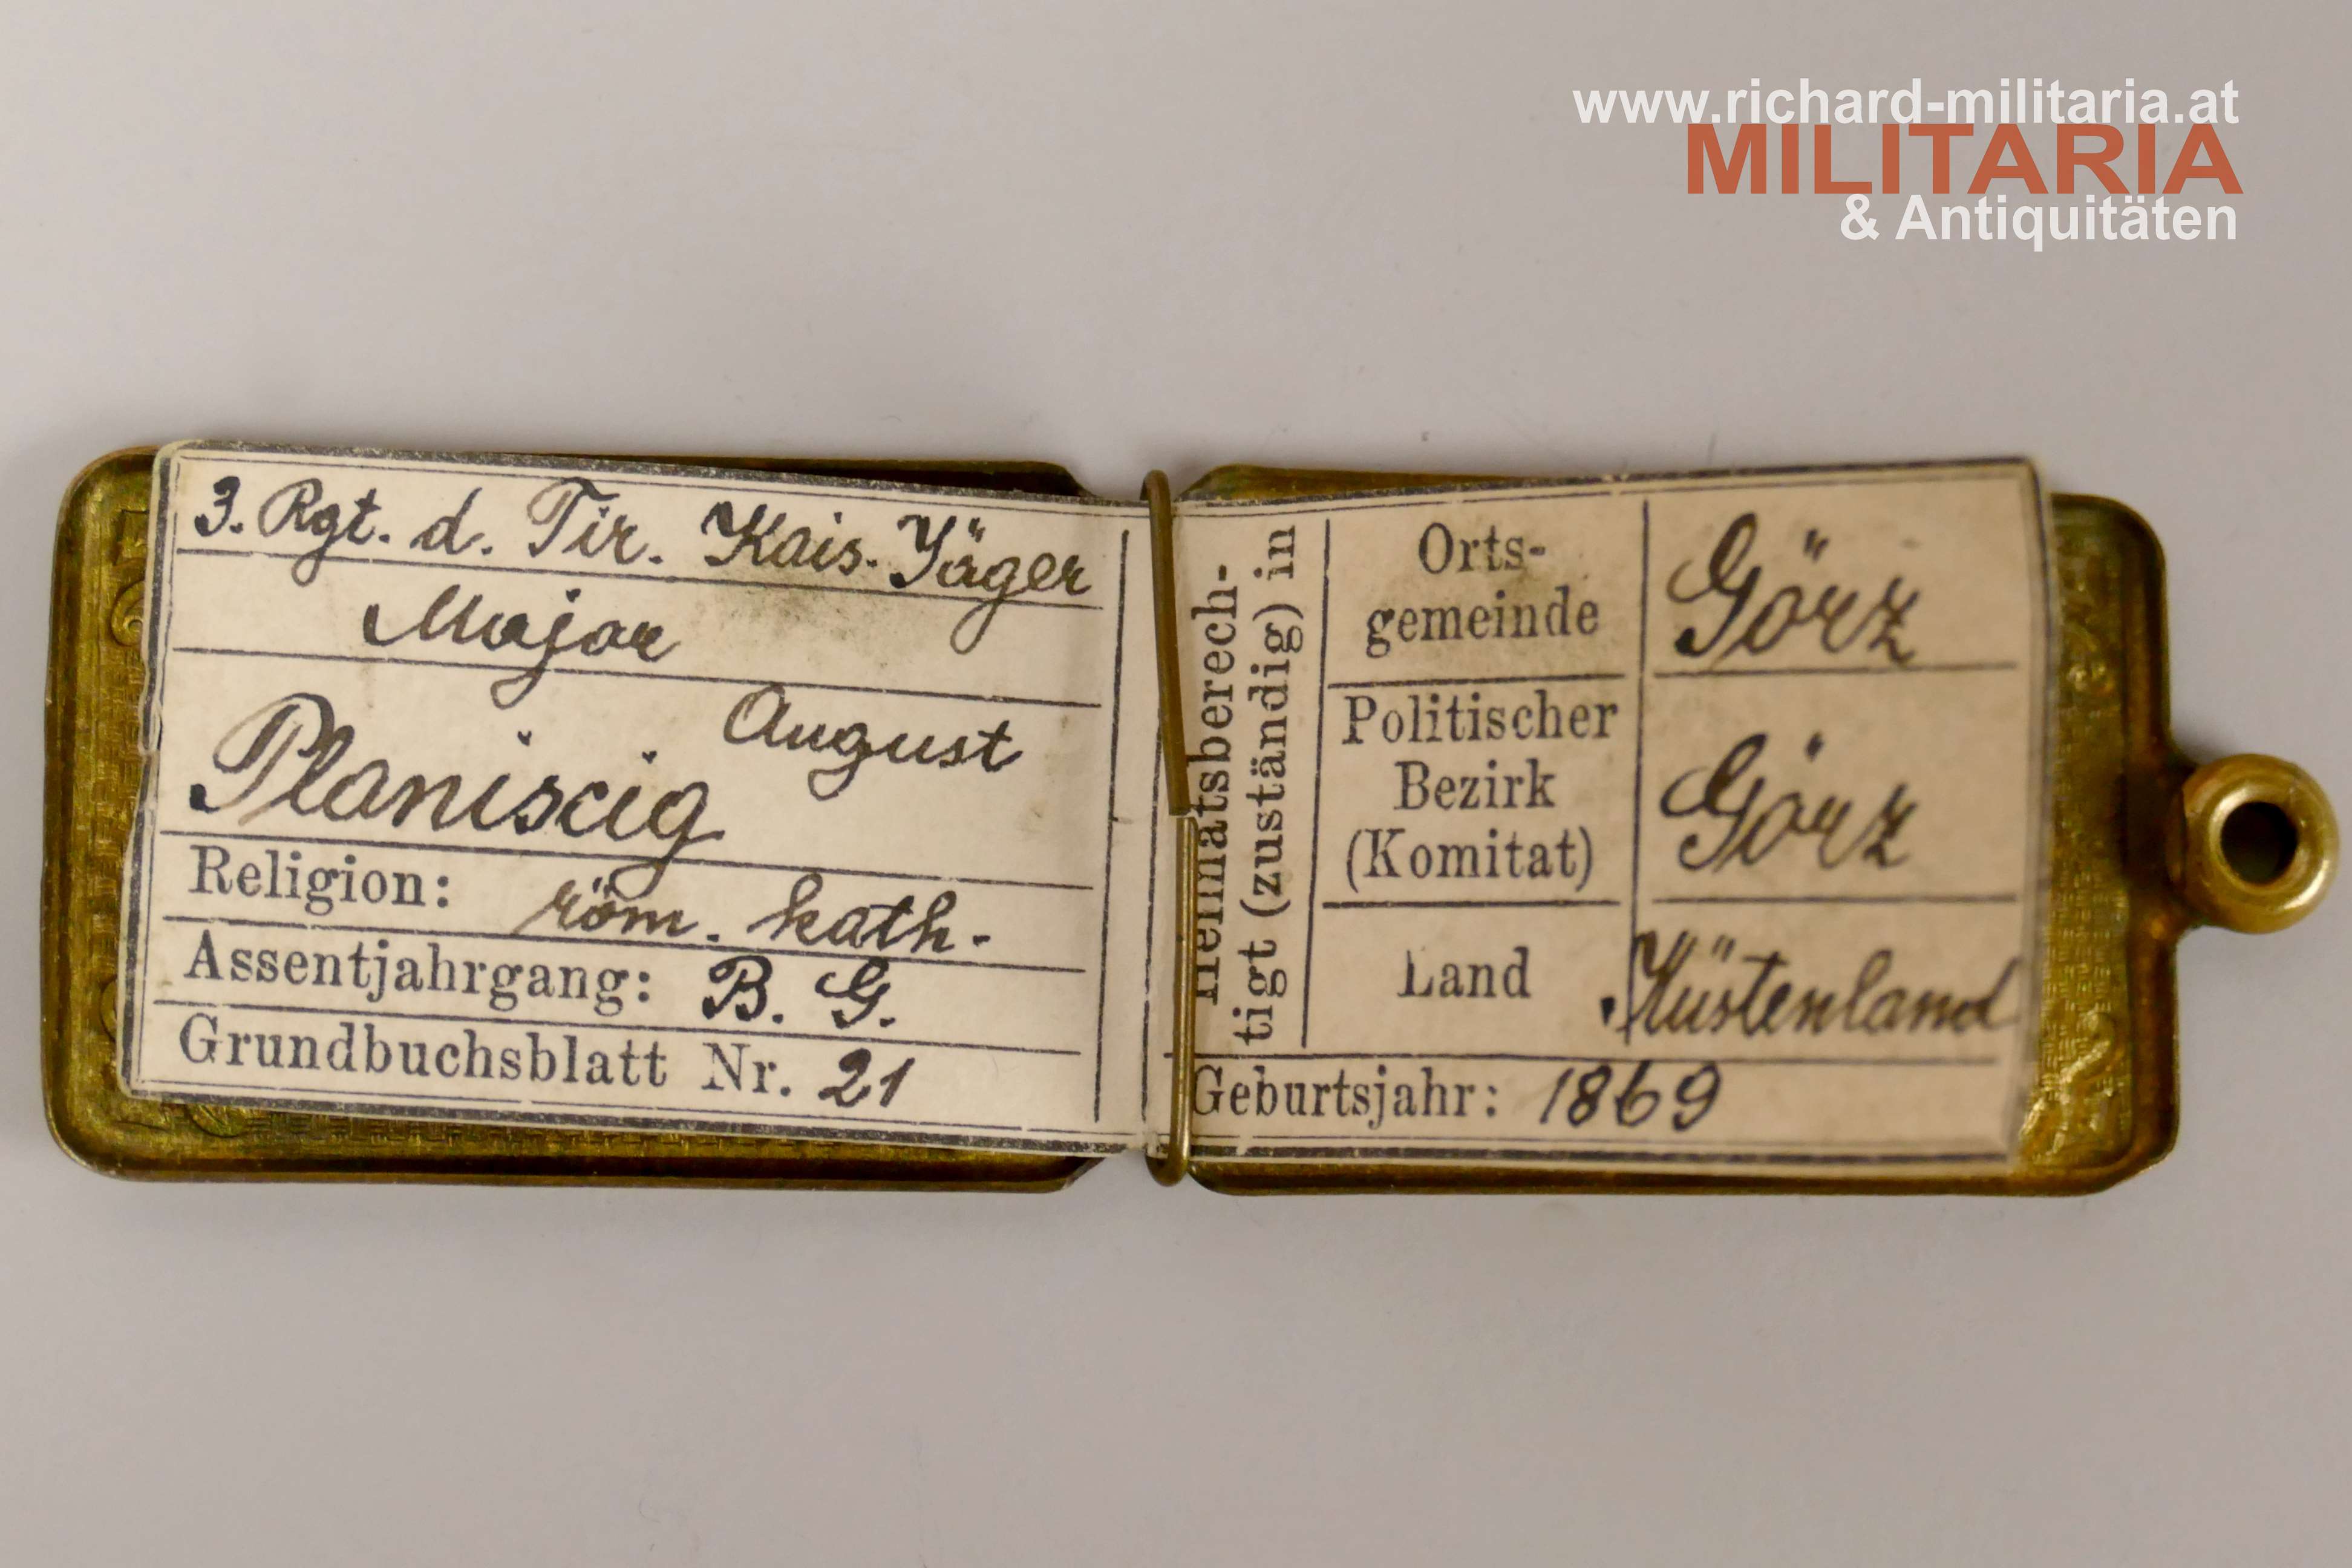 www.richard-militaria.at
MILITARIA
& Antiquitäten
3. Rgt. d. Tir. Kais. Jäger
Major
August
Planiscig
Religion: röm. kath.
Assentjahrgang: B. G.
Grundbuchsblatt Nr. 21
Heimatsberech-
tigt (zuständig) in
Orts-
gemeinde
Görz
Politischer
Bezirk
(Komitat)
Görz
Land
Küstenland
Geburtsjahr: 1869